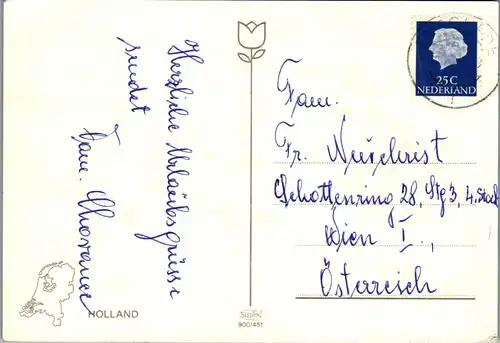 Herzliche Urlaubsgrüsse
sendet
Fam.
25 C
NEDERLAND
Fam.
Fr.
Schottenring 28, Stg 3, 4. Stock
Wien I.,
Österreich
HOLLAND
900/451